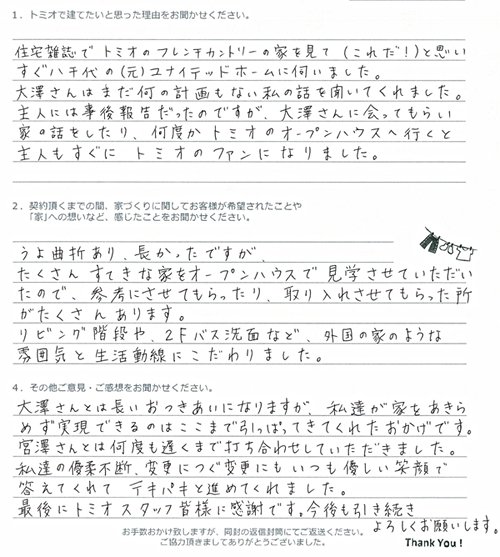 1．トミオで建てたいと思った理由をお聞かせください。
住宅雑誌でトミオのフレンチカントリーの家を見て(これだ!)と思い
すぐ八千代の(元)ユナイテッドホームに伺いました。
大澤さんはまだ何の計画もない私の話を聞いてくれました。
主人には事後報告だったのですが、大澤さんに会ってもらい
家の話をしたり、何度かトミオのオープンハウスへ行くと
主人もすぐにトミオのファンになりました。
2．契約頂くまでの間、家づくりに関してお客様が希望されたことや
「家」への想いなど、感じたことをお聞かせください。
うよ曲折あり、長かったですが、
たくさんすてきな家をオープンハウスで見学させていただい
たので、参考にさせてもらったり、取り入れさせてもらった所
がたくさんあります。
リビング階段や、2Fバス洗面など、外国の家のような
雰囲気と生活動線にこだわりました。
4．その他ご意見・ご感想をお聞かせください。
大澤さんとは長いおつきあいになりますが、私達が家をあきら
めず実現できるのはここまで引っぱってきてくれたおかげです。
宮澤さんとは何度も遅くまで打ち合わせしていただきました。
私達の優柔不断、変更につぐ変更にもいつも優しい笑顔で
答えてくれてテキパキと進めてくれました。
最後にトミオスタッフ皆様に感謝です。今後も引き続き
よろしくお願いします。
お手数おかけ致しますが、同封の返信封筒にてご返送ください。
ご協力頂きましてありがとうございました。
Thank You !